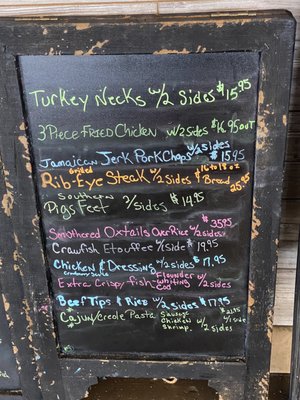 Turkey Necks w/2 Sides $15.95
3 Piece Fried Chicken w/2 sides $16.95
Jamaican Jerk Pork Chops w/2 sides $15.95
Grilled 16 to 18 oz
Rib-Eye Steak w/2 Sides & Bread 25.95
Southern
Pigs Feet 2/sides $14.95
Smothered Oxtails Over Rice w/2 sides $35.95
Crawfish Etouffee w/side $19.95
Chicken & Dressing w/2 sides $17.95
Extra Crispy fish Flounder Whiting Cod w/2 sides
Beef Tips & Rice w/2 Sides $17.95
Cajun/Creole Pasta Sausage Chicken w/ Shrimp 2 sides